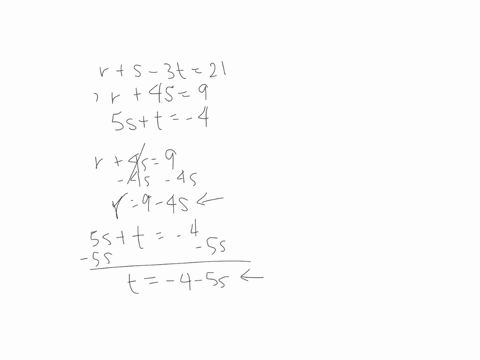 r + s - 3t = 21
r + 4s = 9
5s + t = -4
r + 4s = 9
-4s -4s
r = 9 - 4s ←
5s + t = -4
-5s -5s
t = -4 - 5s ←